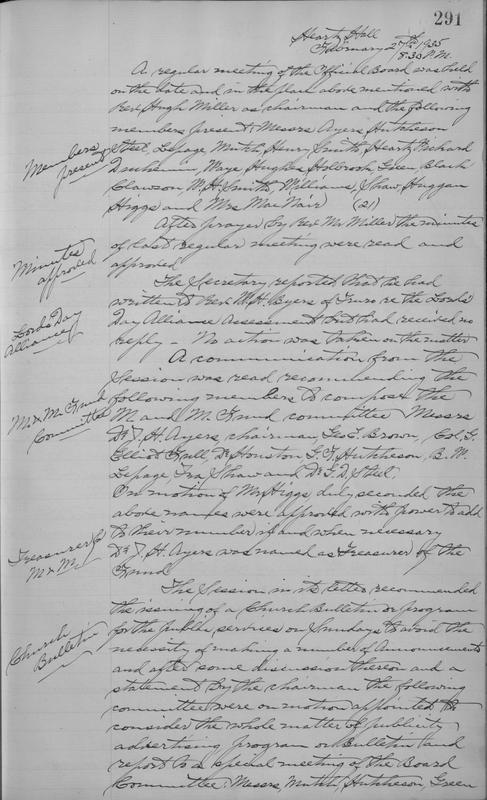 291
Heartz Hall
February 27th 1935
8.30 P.M.
A regular meeting of the Official Board was held
on the date and in the place above mentioned with
Rev Hugh Miller as chairman and the following
members present; Messrs Ayers, Hutcheson
Members present
Steel, Lepage, Mutch, Henry Smith, Heartz, Prichard
Waye, Hughes, Holbrook, Green, Black
Clawson, W.H. Smith, Williams, Shaw, Huggan
Higgs and Mrs MacNair (21)
After prayer by Rev Mr Miller the minutes
Minutes approved
of last regular meeting were read and
approved
The Secretary reported that he had
written to Rev W.H. Byers of Truro re the Lords
Lords Day Alliance
Day Alliance Assessment but had received no
reply - No action was taken on the matter
A communication from the
Session was read recommending the
M. & M. Fund Committee
following members to compose the
M. and M. Fund committee Messrs
Dr J. H. Ayers, chairman, Geo E. Brown, Col. G.
Elliot Full, Dr Houston, G. F. Hutcheson, B. W.
Lepage, Ira Shaw and Dr G. D. Steel.
On motion of Mr Higgs duly seconded the
above names were approved with power to add
to their number if and when necessary
Treasurer for M & M
Dr J. H. Ayers was named as Treasurer of the
Fund
The Session in its letter recommended
the issuing of a Church Bulletin or program
for the public services on Sundays to avoid the
Church Bulletin
necessity of making a number of Announcements
and after some discussion thereon and a
statement by the chairman the following
committee were on motion appointed to
consider the whole matter of publicity
advertising program or Bulletin and
report to a special meeting of the Board
Committee: Messrs, Mutch, Hutcheson, Green